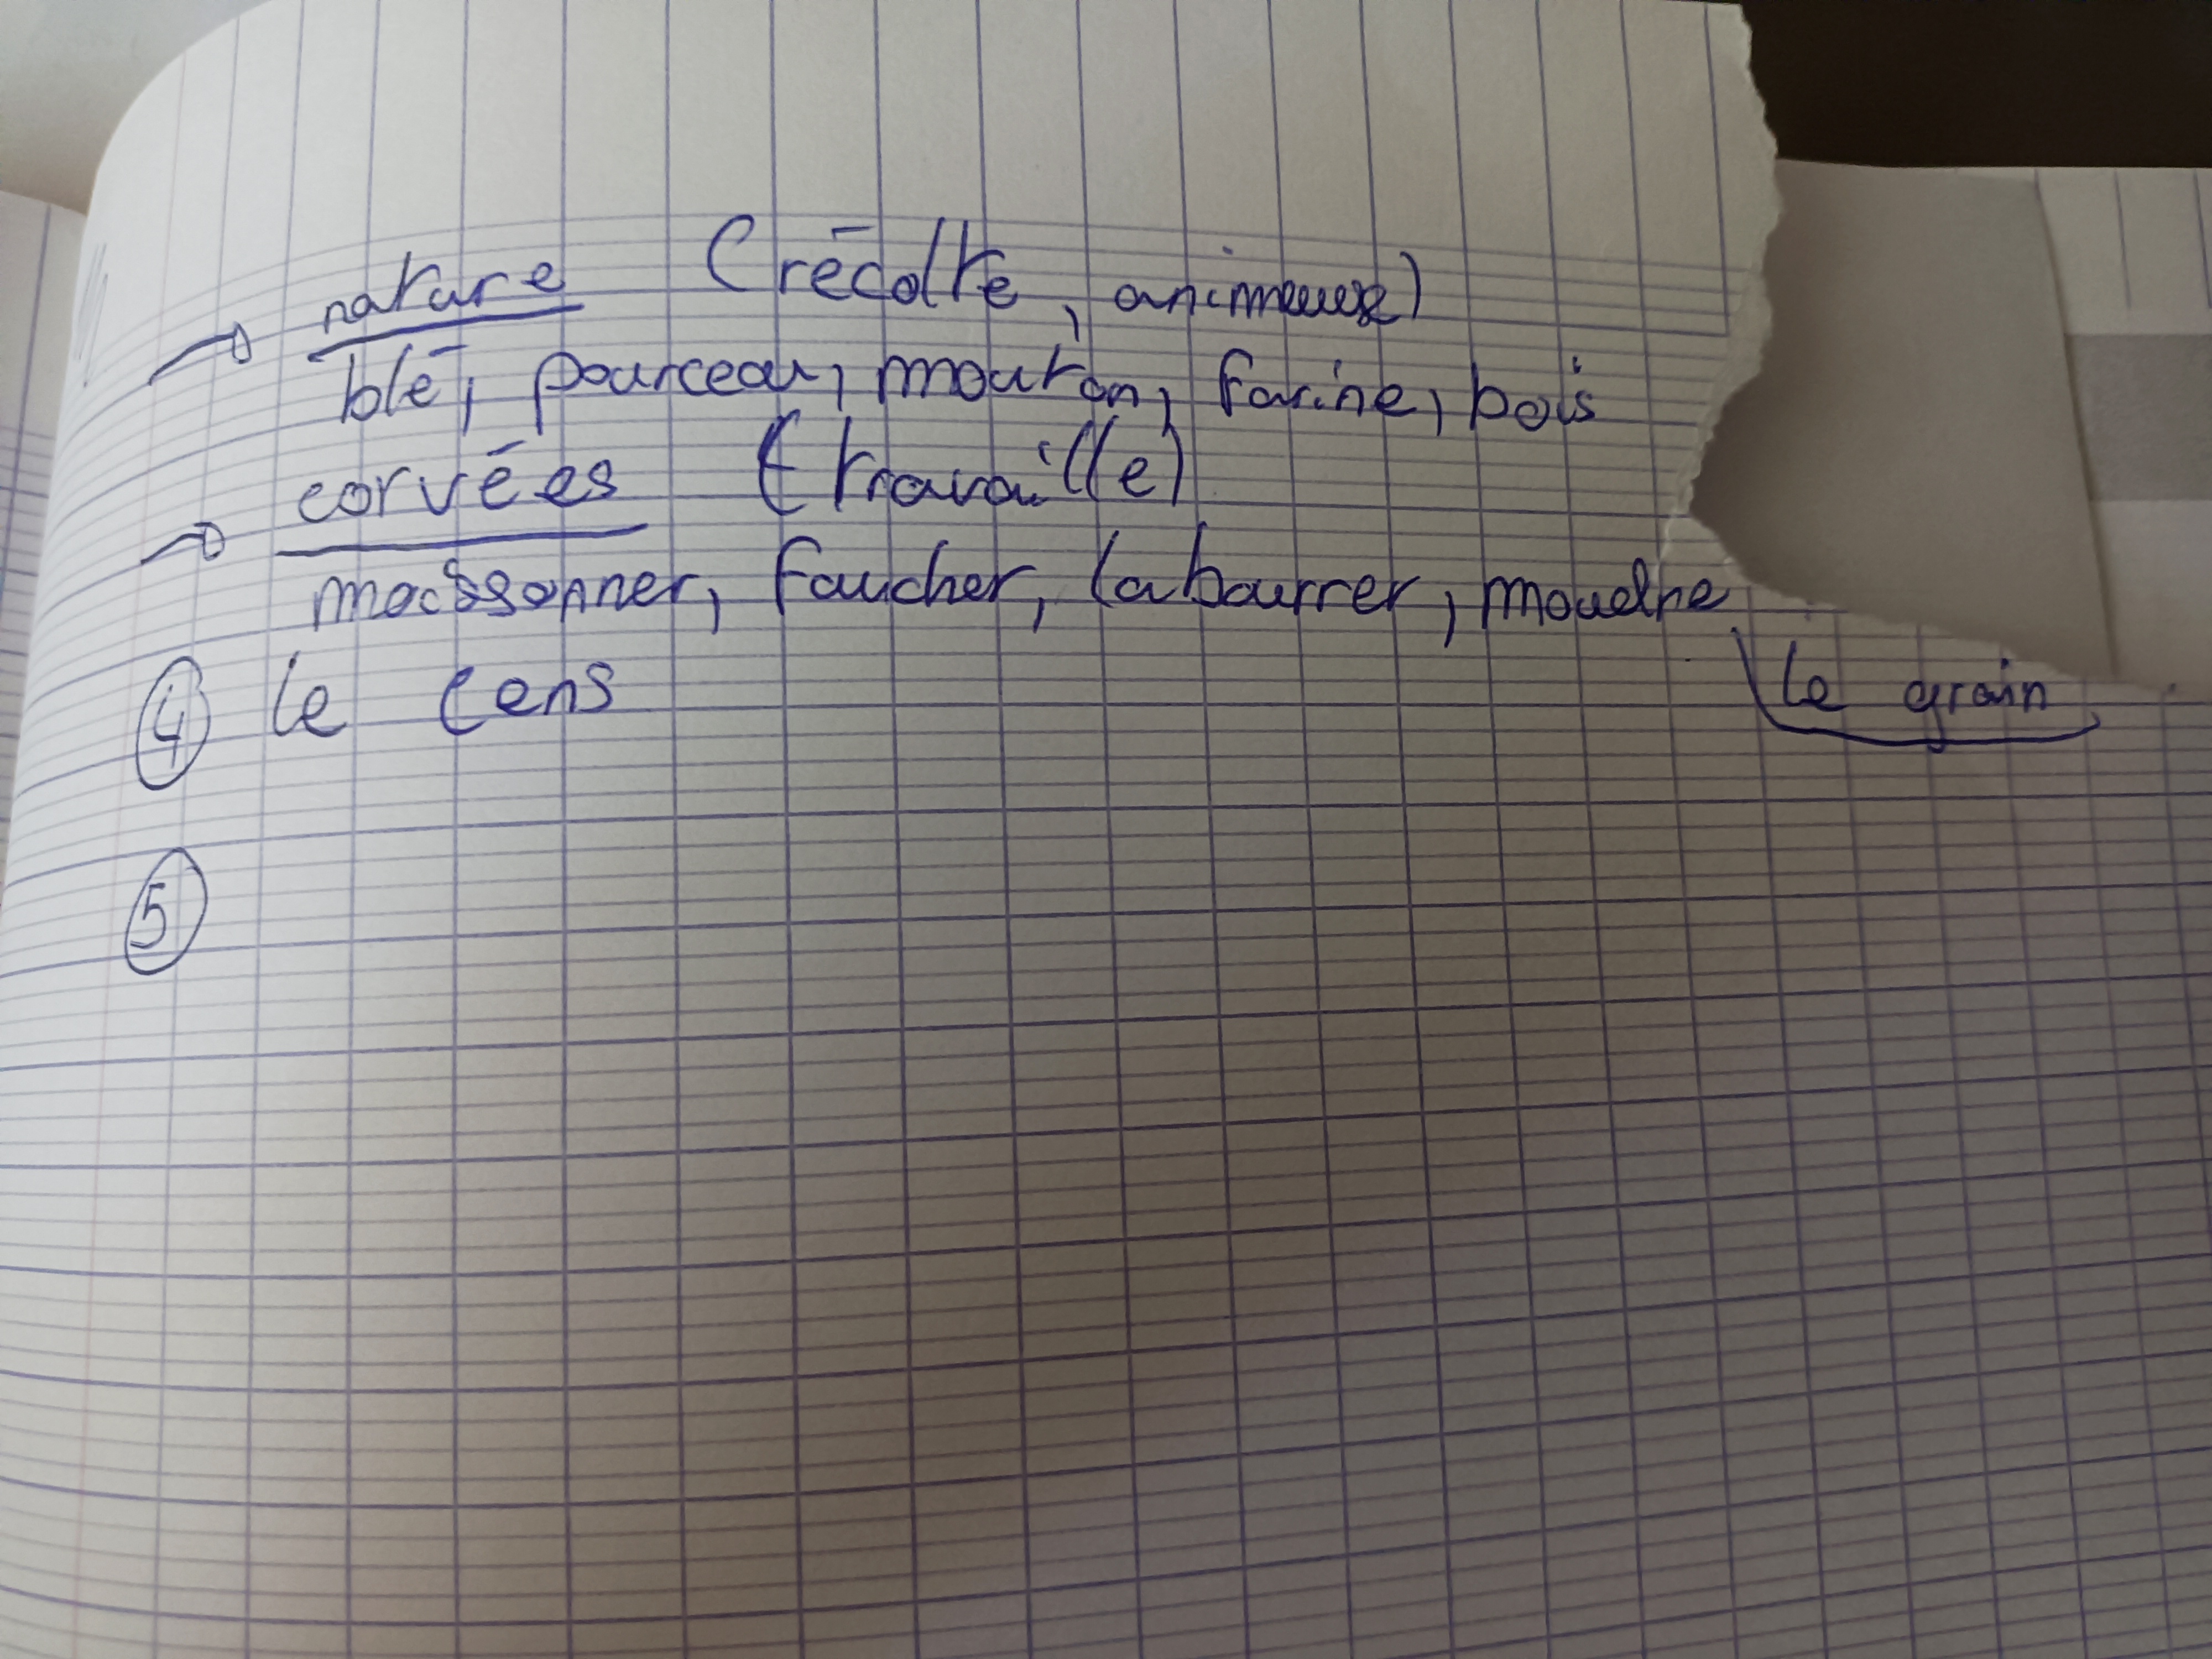 → nature (récolte, animeux)
blé, pourceau, mouton, farine, bois
→ corvées (travaille)
moissonner, faucher, labourrer, moudre
le grain
④ le cens
⑤